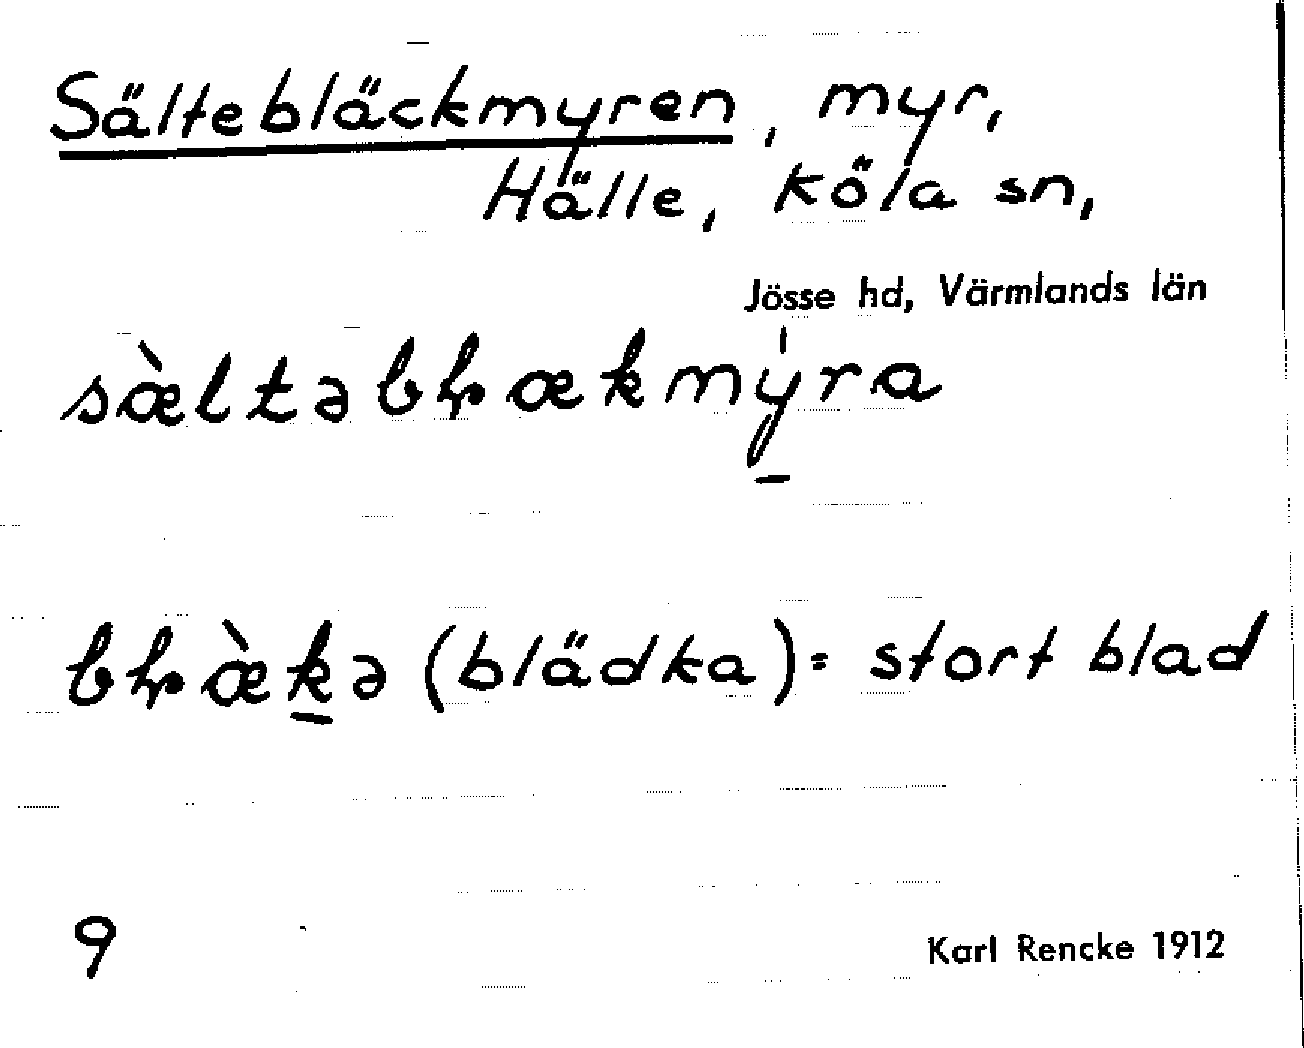 Sältebläckmyren, myr,
Hälle, Köla sn,
Jösse hd, Värmlands län
sæ̀ltəbɽækmýra
bɽæ̀kə (blädka) = stort blad
9
Karl Rencke 1912